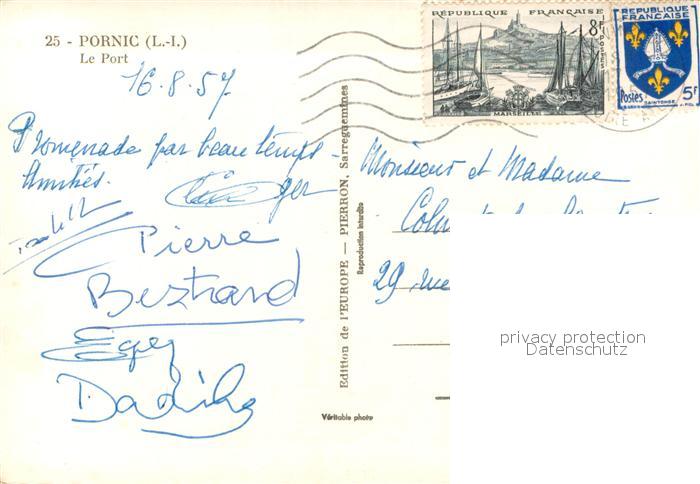 25 - PORNIC (L.-I.)
Le Port
16.8.57
Promenade par beau temps -
Amitiés.
Pierre
Bertrand
RÉPUBLIQUE FRANÇAISE
8F
POSTES
MARSEILLE
REPUBLIQUE
FRANÇAISE
Postes 5F
SAINTONGE
Monsieur et Madame
29 rue
Edition de l'EUROPE — PIERRON, Sarreguemines
Reproduction interdite
Véritable photo
privacy protection
Datenschutz